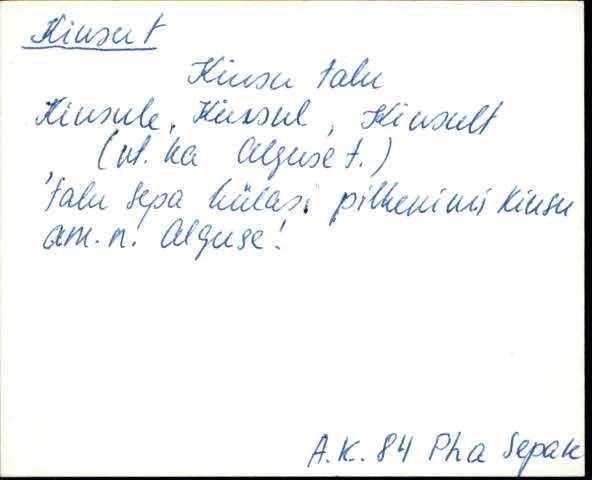 Kinsu t
Kinsu talu
Kinsule, Kinsul, Kinsult
(vt. ka Alguse t.)
'talu Sepa külas; pilkenimi Kinsu
am. n. Alguse!
A.K. 84 Pha Sepak